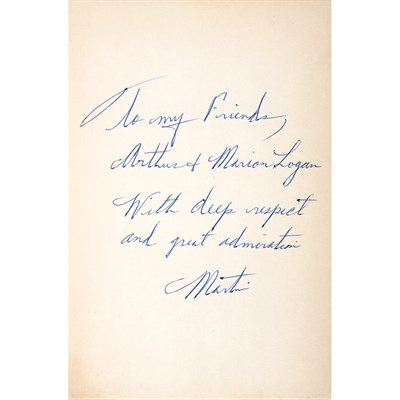 To my Friends,
Arthur & Marion Logan
With deep respect
and great admiration
Martin